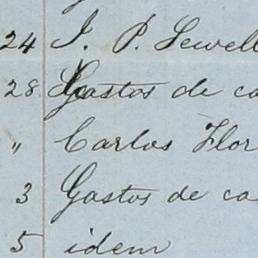 24 J. P. Sewell
28 Gastos de ca
" Carlos Flor
3 Gastos de ca
5 idem